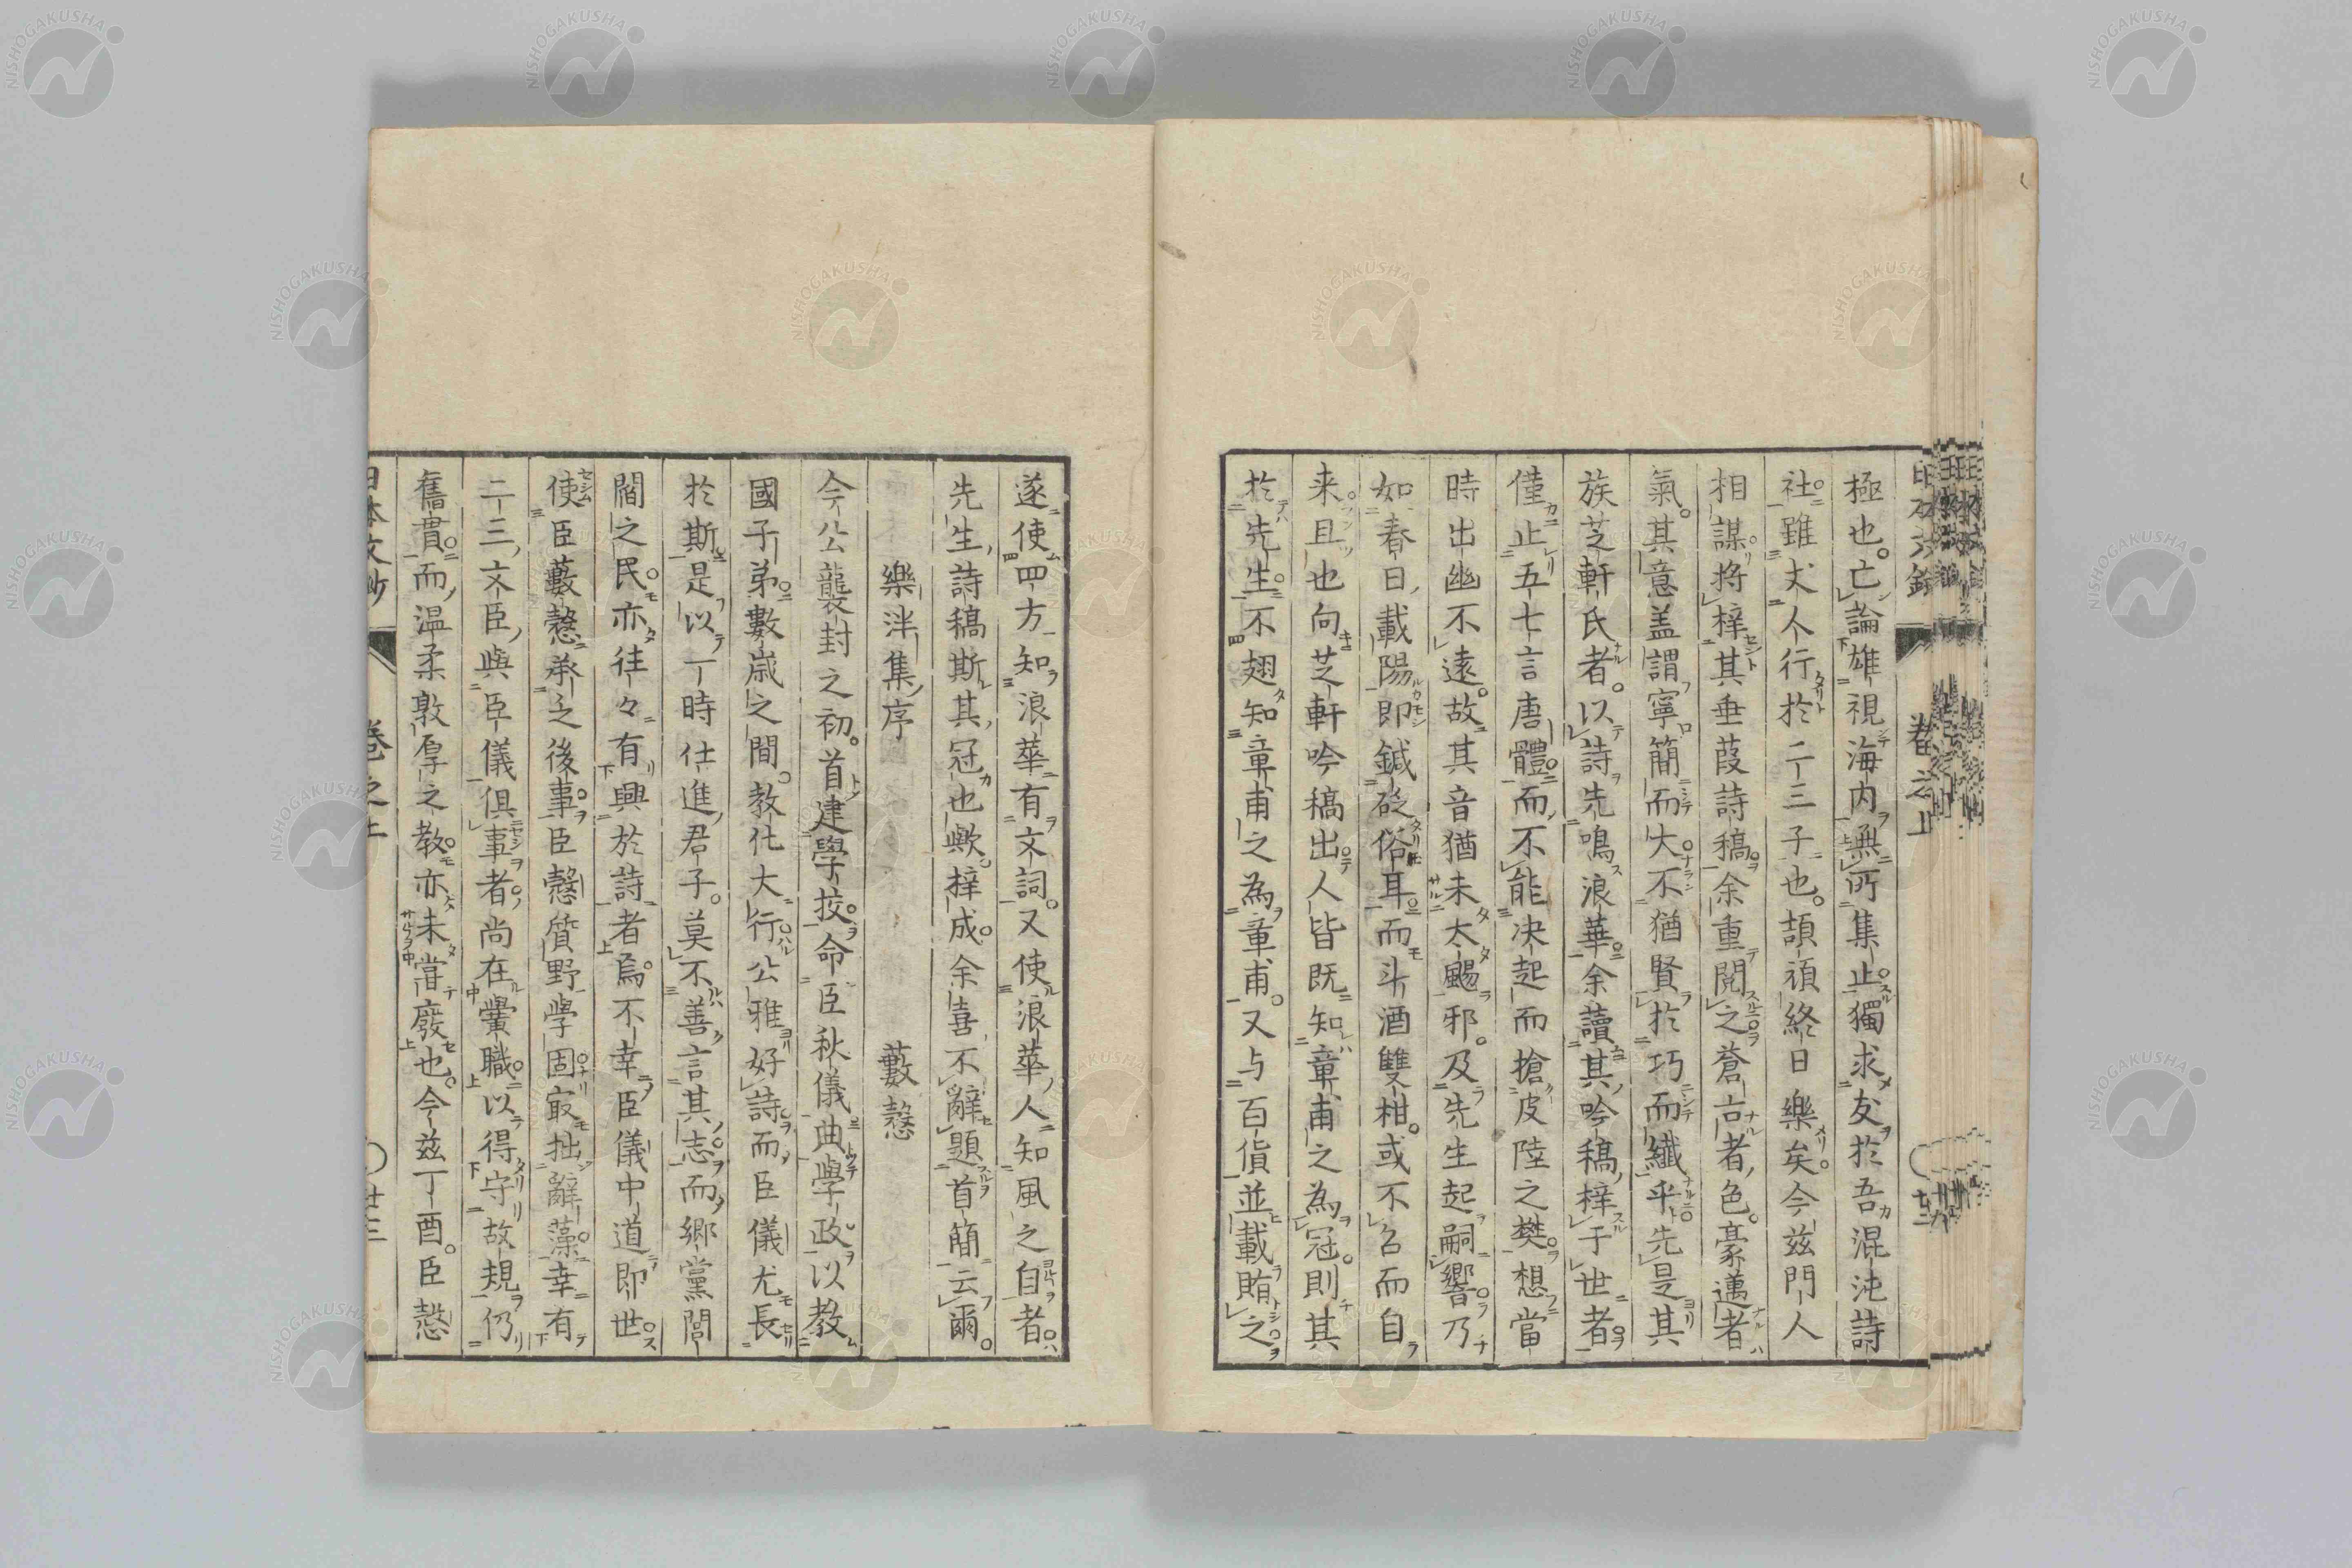 極也。亡論雄視海内無所集止獨求友於吾混沌詩
社雖丈人行於二三子也。頡頏終日樂矣。今茲門人
相謀將梓其垂葭詩稿余重閲之蒼古者色。豪邁者
氣。其意盖謂寧簡而大不猶賢於巧而纖乎先是其
族芝軒氏者。以詩先鳴浪華余讀其吟稿梓于世者
僅止五七言唐體而不能決起而搶皮陸之樊想當
時出幽不遠。故其音猶未太颺邪。及先生起嗣響乃
如春日載陽即鍼砭俗耳而斗酒雙柑。或不名而自
来且也向芝軒吟稿出人皆既知章甫之為冠。則其
於先生不翅知章甫之為章甫。又与百貨並載賄之
遂使四方知浪華有文詞。又使浪華人知風之自者
先生詩稿斯其冠也歟梓成。余喜不辭題首簡云爾。
樂泮集序 藪愨
今公襲封之初。首建學校。命臣秋儀曲學政以教
國子弟數歳之間教化大行公雅好詩而臣儀尤長
於斯是以一時仕進君子。莫不善言其志而郷黨閭
閻之民亦往々有興於詩者焉。不幸臣儀中道即世
使臣藪愨承乏後事。臣愨質野學固寂拙辭藻。幸有
二三文臣與臣儀倶事者。尚在黌職。以得守故規仍
舊貫。而温柔敦厚之教亦未嘗廢也。今茲丁酉。臣愨
日本文鈔 巻之上 廿三
巻之上